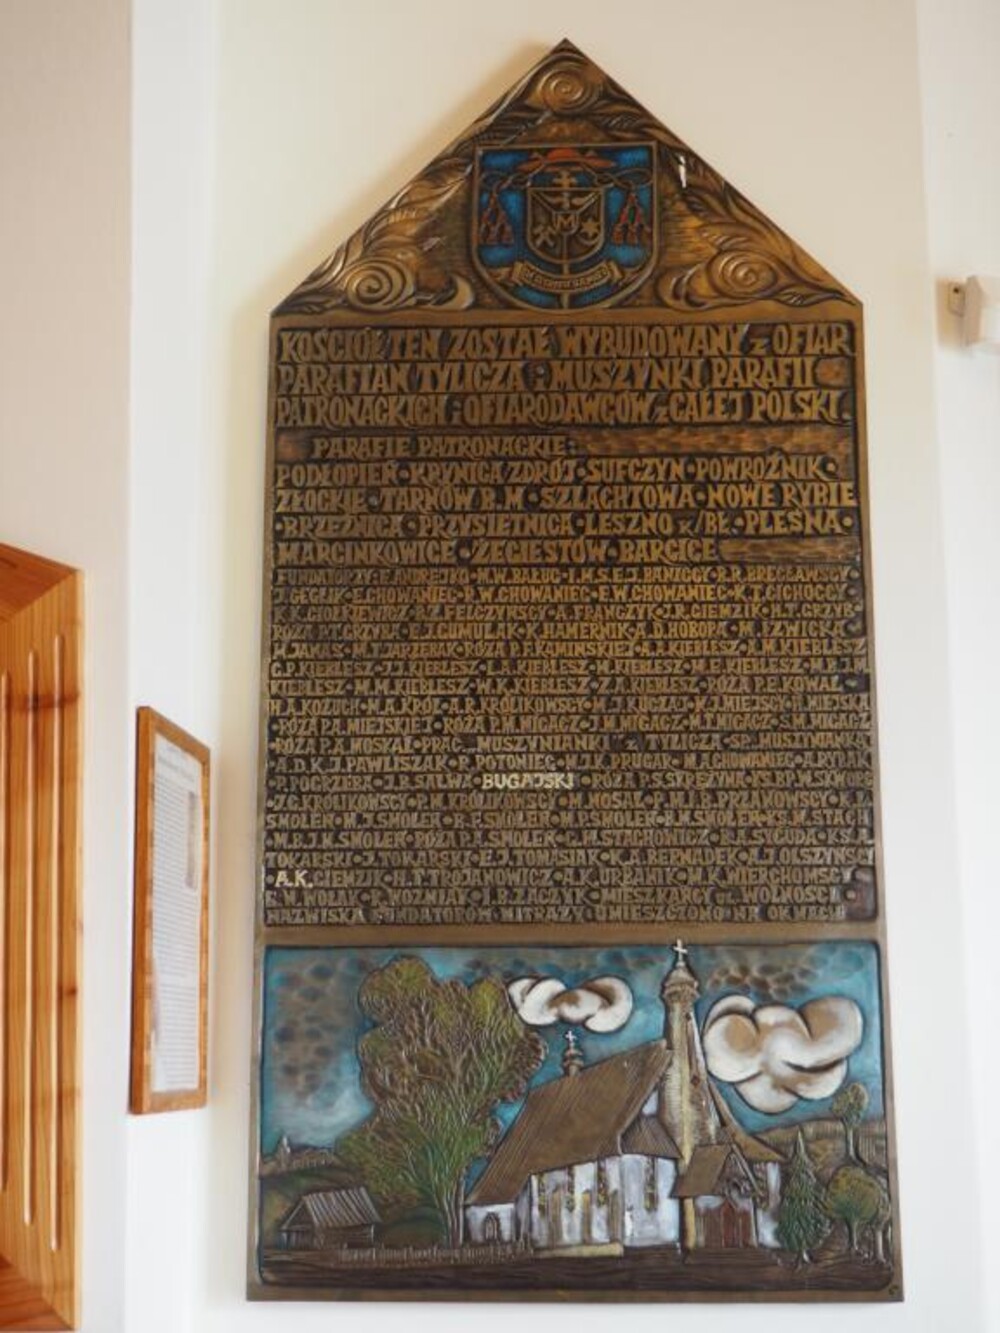 KOŚCIÓŁ TEN ZOSTAŁ WYBUDOWANY z OFIAR
PARAFIAN TYLICZA i MUSZYNKI PARAFII
PATRONACKICH i OFIARODAWCÓW z CAŁEJ POLSKI.
PARAFIE PATRONACKIE:
PODŁOPIEŃ • KRYNICA ZDRÓJ • SUFCZYN • POWROŹNIK •
ZŁOCKIE • TARNÓW B.M. • SZLACHTOWA • NOWE RYBIE
• BRZEŹNICA • PRZYSIETNICA • LESZNO k/BŁ. • PLEŚNA •
MARCINKOWICE • ŻEGIESTÓW • BARCICE
FUNDATORZY: E. ANDREJKO • M.W. BAŁUC • I.M.S.E.J. BANICCY • R.R. BRĘCŁAWSCY
J. CEGLIK • E. CHOWANIEC • P.W. CHOWANIEC • E.W. CHOWANIEC • K.T. CICHOCCY
K.K. CIOŁKIEWICZ • B.Z. FELCZYŃSCY • A. FRANCZYK • J.R. GIEMZIK • H.T. GRZYB •
RÓŻA P.T. GRZYBA • E.J. GUMULAK • K. HAMERNIK • A.D. HOBORA • M. IZWICKA
M. JANAS • M.T. JARZEBAK • RÓŻA P.F. KAMIŃSKIEJ • A.A. KIEBLESZ • A.M. KIEBLESZ
G.P. KIEBLESZ • J.J. KIEBLESZ • L.A. KIEBLESZ • M. KIEBLESZ • M.E. KIEBLESZ • M.B.J.M.
KIEBLESZ • M.M. KIEBLESZ • W.K. KIEBLESZ • Z.A. KIEBLESZ • RÓŻA P.E. KOWAL •
H.A. KOŻUCH • M.A. KRÓL • A.R. KRÓLIKOWSCY • M.J. KUCZAJ • K.J. MIEJSCY • H. MIEJSKA
• RÓŻA P.A. MIEJSKIEJ • RÓŻA P.M. MIGACZ • J.M. MIGACZ • M.T. MIGACZ • S.M. MIGACZ
• RÓŻA P.A. MOSKAL • PRAC. „MUSZYNIANKI” z TYLICZA • SP. „MUSZYNIANKA”
• A.D.K.J. PAWLISZAK • R. POTONIEC • M.J.K. PRUGAR • M.A. CHOWANIEC • A. RYBAK
P. POGRZEBA • J.B. SALWA • BUGAJSKI • RÓŻA P.S. SPRĘŻYNA • KS. BP. W. SKWORC
• J.G. KRÓLIKOWSCY • P.M. KRÓLIKOWSCY • M. NOSAL • P.M.I.B. PRZANOWSCY • K.Z.
SMOLEŃ • M.J. SMOLEŃ • R.P. SMOLEŃ • M.P. SMOLEŃ • B.M. SMOLEŃ • KS. M. STACH
• M.B.J.N. SMOLEŃ • RÓŻA P.A. SMOLEŃ • C.H. STACHOWICZ • B.A. SYGUDA • KS. J.
TOKARSKI • J. TOKARSKI • E.J. TOMASIAK • K.A. BERNADEK • A.J. OLSZYŃSCY
• A.K. CIEMZIK • H.T. TROJANOWICZ • A.K. URBANIK • M.K. WIERCHOMSCY
E.M. WOLAK • R. WOŹNIAK • J.B. ZACZYK • MIESZKAŃCY UL. WOLNOŚCI •
NAZWISKA FUNDATORÓW WITRAŻY UMIESZCZONO NA OKNACH